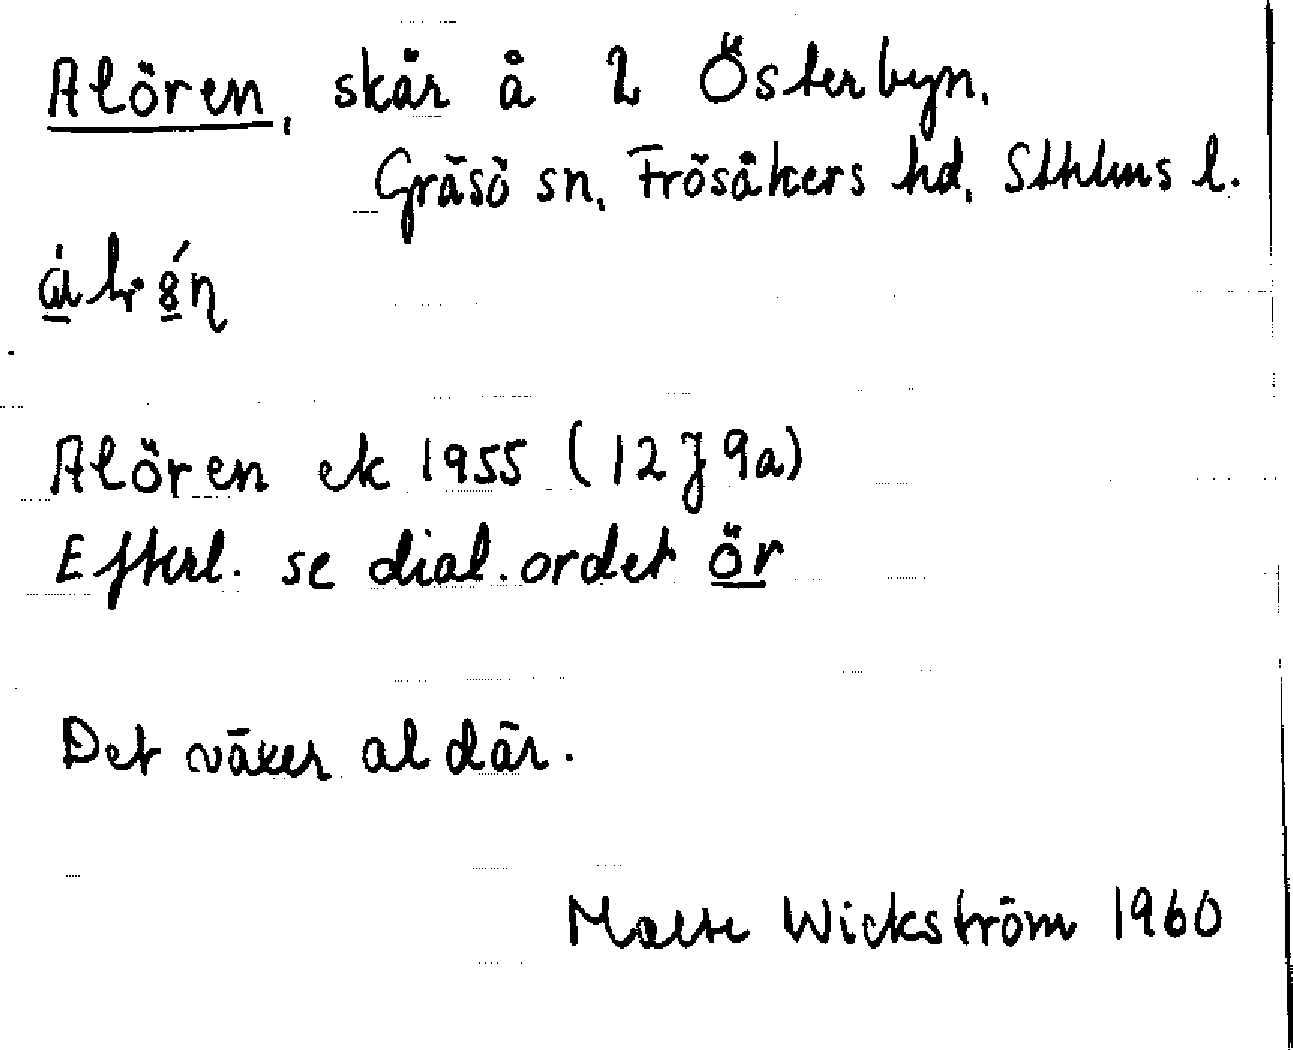 Alören, skär å 2 Österbyn.
Gräsö sn, Frösåkers hd, Sthlms l.
Alören ek 1955 (12J 9a)
Efterl. se dial. ordet ör
Det växer al där.
Malte Wickström 1960